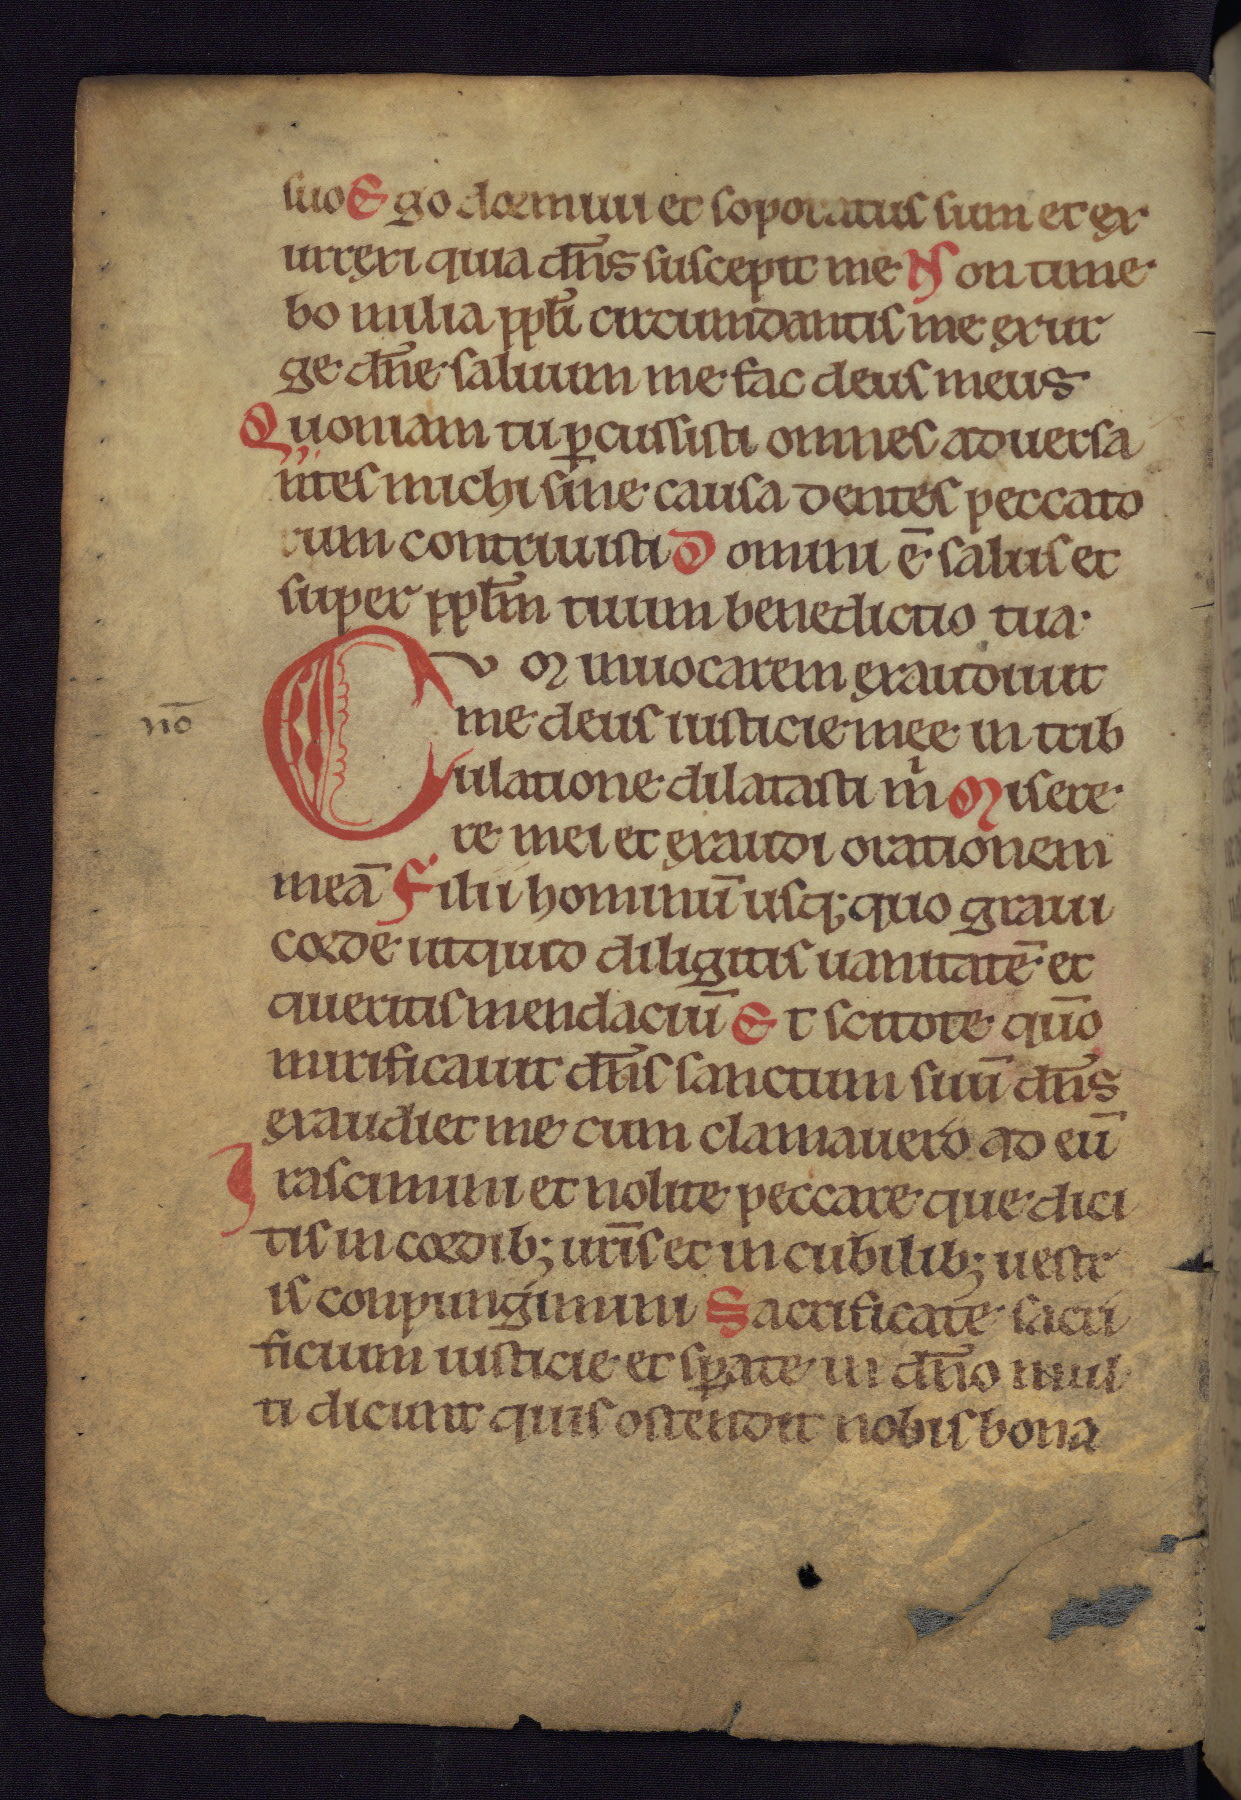 suo Ego dormiui et soporatus sum et ex
urrexi quia dn̄s suscepit me Non time
bo milia pplī circumdantis me exur
ge dn̄e saluum me fac deus meus
Quoniam tu ꝑcussisti omnes aduersa
ntes michi sine causa dentes peccato
rum contriuisti Domini ē salus et
super pplm̄ tuum benedictio tua
Cvm inuocarem exaudiuit
nō
me deus iusticie meę in trib
ulatione dilatasti m̄ Misere
re mei et exaudi orationem
meā Filii hominū usq; quo graui
corde utquid diligitis uanitatē et
queritis mendaciū Et scitote qūo
mirificauit dn̄s sanctum suū dn̄s
exaudiet me cum clamauero ad eū
Irascimini et nolite peccare que dici
tis in cordib; ur̄is et in cubilib; uestr
is conpungimini Sacrificate sacri
ficium iusticie et sꝑate in dn̄o mul
ti dicunt quis ostendit nobis bona